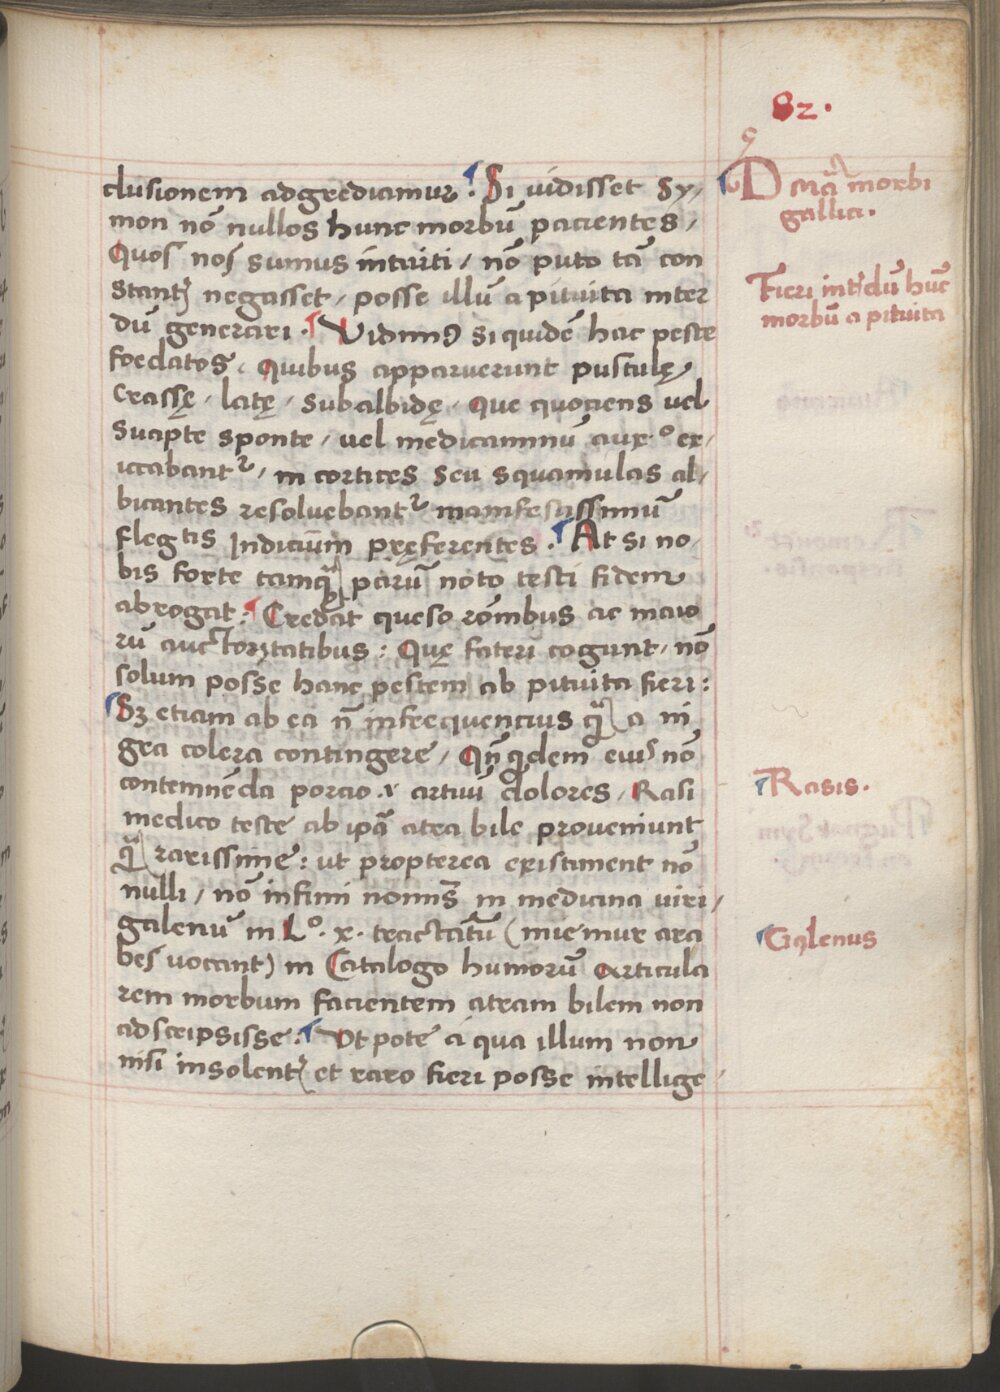 82.
clusionem adgrediamur. Si vidisset Sy,
mon nō nullos hunc morbū pacientes,
Quos nos sumus intuiti, nō puto tā con
stantʒ negasset, posse illū a pituita inter
dū generari. Vidimꝰ siquidē hac peste
foedatos, Quibus apparuerunt pustulę
Crassę, latę, subalbidę, Que quociens vel
suapte sponte, vel medicaminū aux.º ex,
iccabantᷣ, in cortices seu squamulas al,
bicantes resoluebantᷣ manifestissimū
flegtis Indicium pręferentes. At si no,
bis forte tamqᷓ parū noto testi fidem
abrogat: Credat queso rōnibus ac maio
rū auctoritatibus: Quę fateri cogunt, nō
solum posse hanc pestem ab pituita fieri:
Sʒ etiam ab ea n̄ infrequencius qᷓ a ni
gra colera contingere, Qn̄ qͥdem eius nō
contemnēda porcio .i. artuū dolores, Rasi
medico teste ab ipā atra bile proveniunt
qᷓ rarissime: ut propterea existiment nō
nulli, nō infimi nominis in medicina viri,
galenū in Lº. x. tractatū (miemur ara
bes vocant) in Catalogo humorū articula
rem morbum facientem atram bilem non
adscripsisse. Ut pote a qua illum non
nisi insolentʒ et raro fieri posse intellige
morbi
gallici.
Fieri intʒdū hūc
morbū a pituita
Rasis.
Galenus